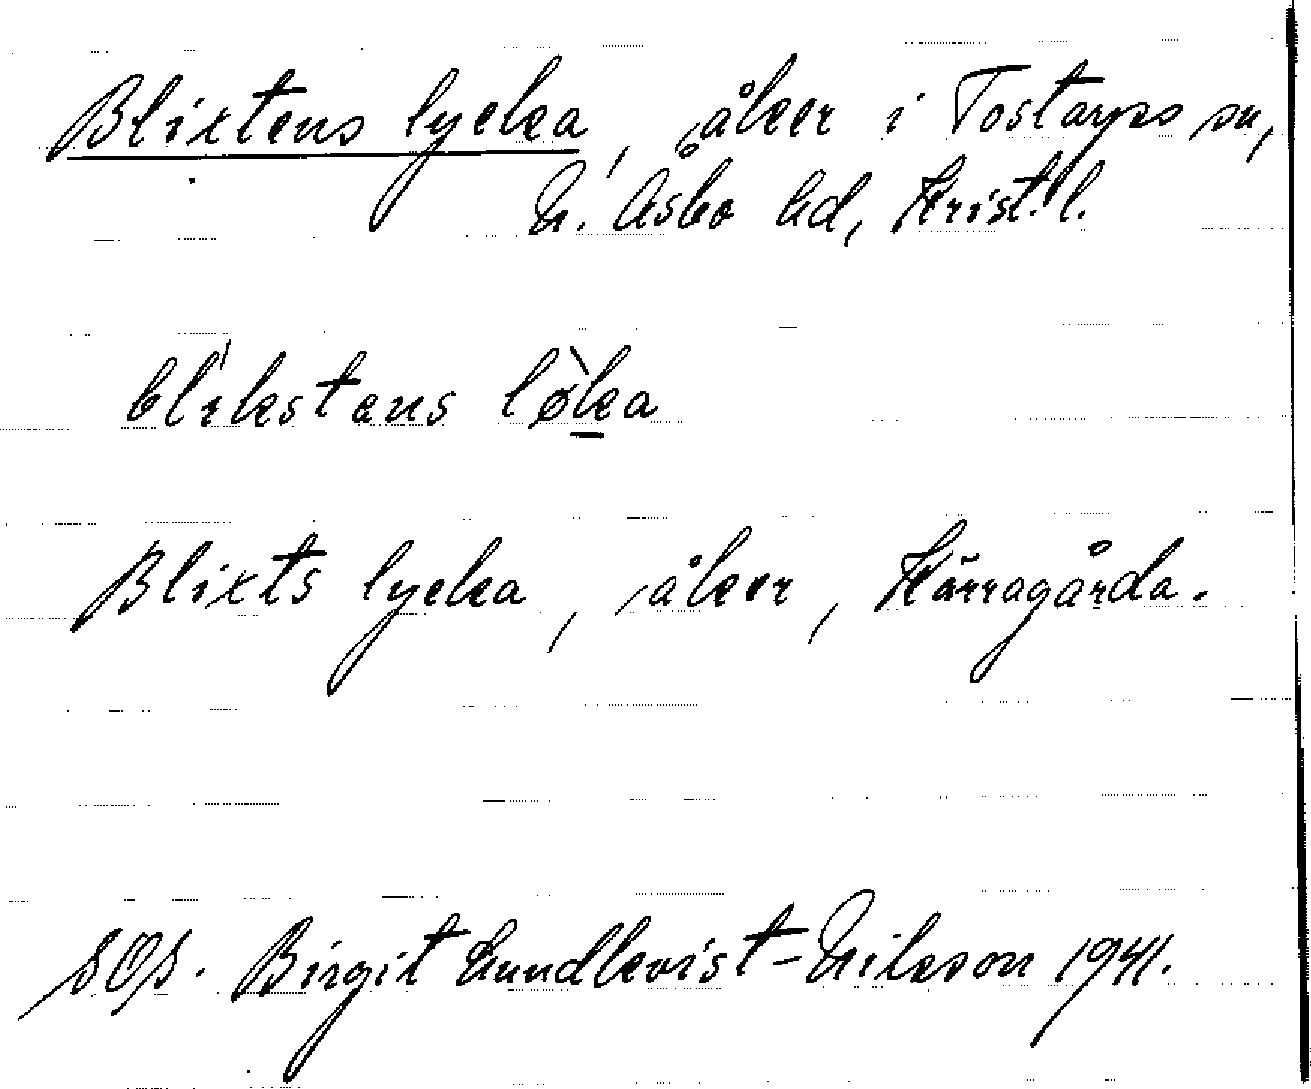 Blixtens lycka, åker i Tostarps sn,
N. Åsbo hd, Krist. l.
blikstens løka
Blixts lycka, åker, Kärragårda.
Birgit Lundkvist-Nilsson 1941.